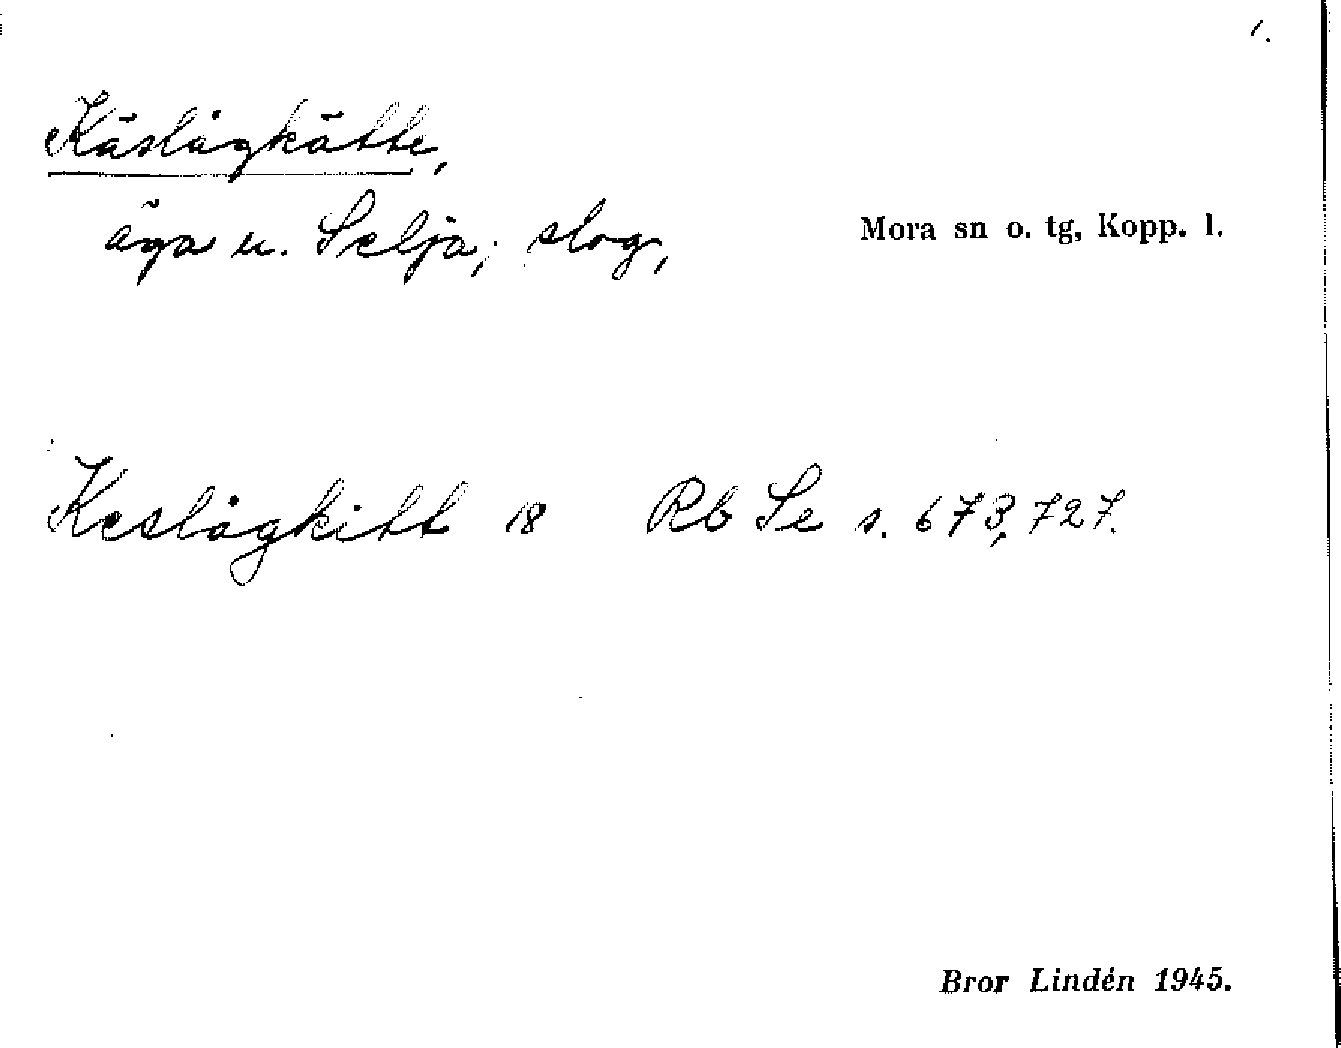 1.
Käslågkätte,
äga u. Selja; slog,
Mora sn o. tg, Kopp. l.
Keslågkitt 18 Rb Se s. 673, 727.
Bror Lindén 1945.